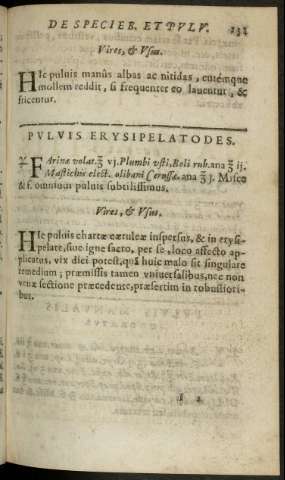 DE SPECIEB. ET PVLV. 231
Vires, & Vsus.
HIc puluis manûs albas ac nitidas, cutémque
mollem reddit, si frequenter eo lauentur, &
fricentur.
PVLVIS ERYSIPELATODES.
♃ FArinæ volat. ℥ vj. Plumbi vsti, Boli rub. ana ℥ ij.
Mastichis elect. olibani Cerussæ. ana ℥ j. Misce
& f. omnium puluis subtilissimus.
Vires, & Vsus.
HIc puluis chartæ cæruleæ inspersus, & in erysi-
pelate, siue igne sacro, per se, loco affecto ap-
plicatus, vix dici potest, quā huic malo sit singulare
remedium; præmissis tamen vniuersalibus, nec non
venæ sectione præcedente, præsertim in robustiori-
bus.